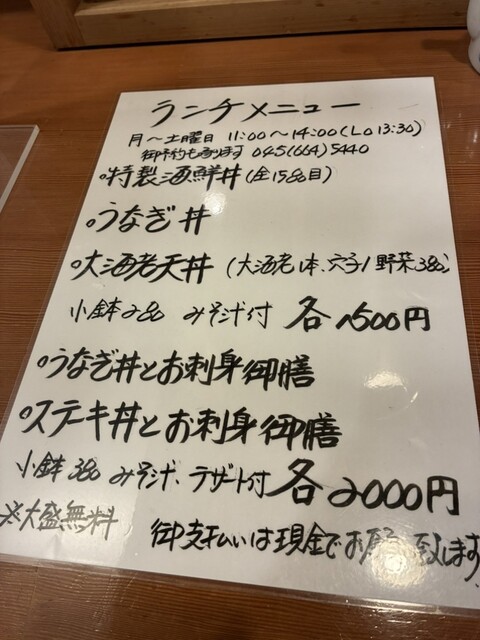 ランチメニュー
月～土曜日 11:00～14:00(L.O 13:30)
御予約も承ります 045(664)5440
・特製海鮮丼(全15品目)
・うなぎ丼
・大海老天丼(大海老1本、穴子1野菜3品)
小鉢2品 みそ汁付 各1500円
・うなぎ丼とお刺身御膳
・ステーキ丼とお刺身御膳
小鉢3品 みそ汁、デザート付 各2000円
※大盛無料 御支払いは現金でお願い致します